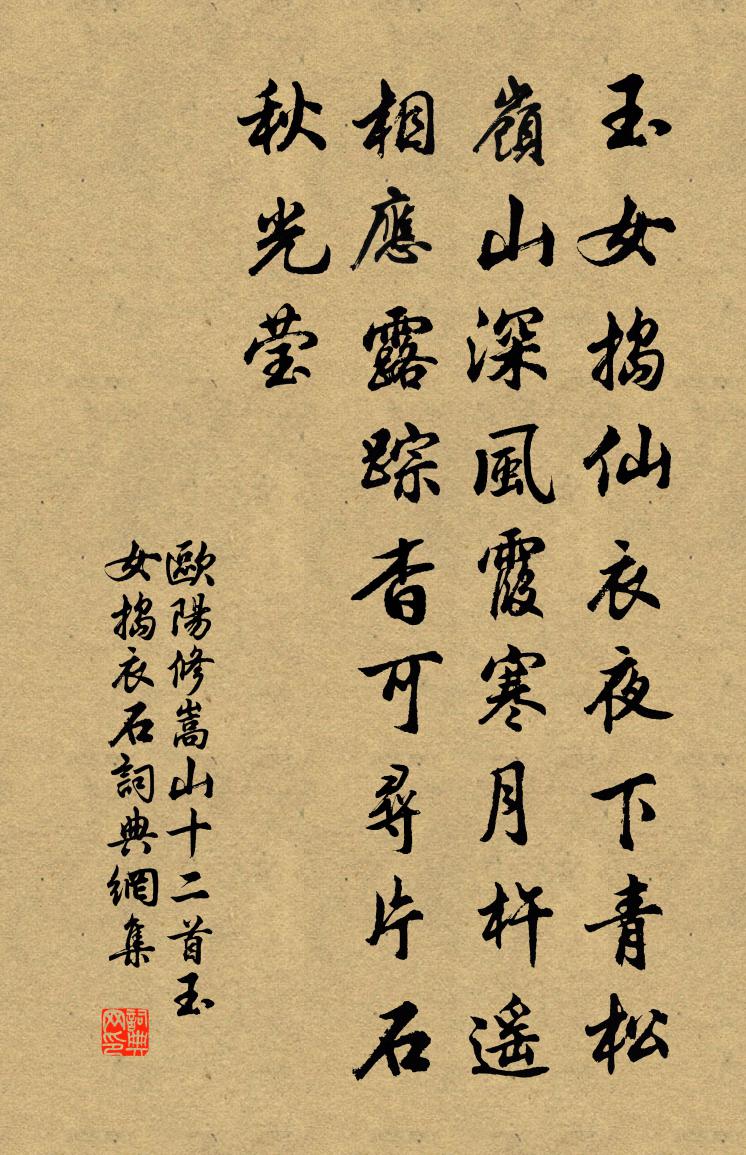 玉女搗仙衣夜下青松
嶺山深風霞寒月杵遥
相應露踪杳可尋片石
秋光莹
歐陽修嵩山十二首玉
女搗衣石詞典網集
詞典
网印